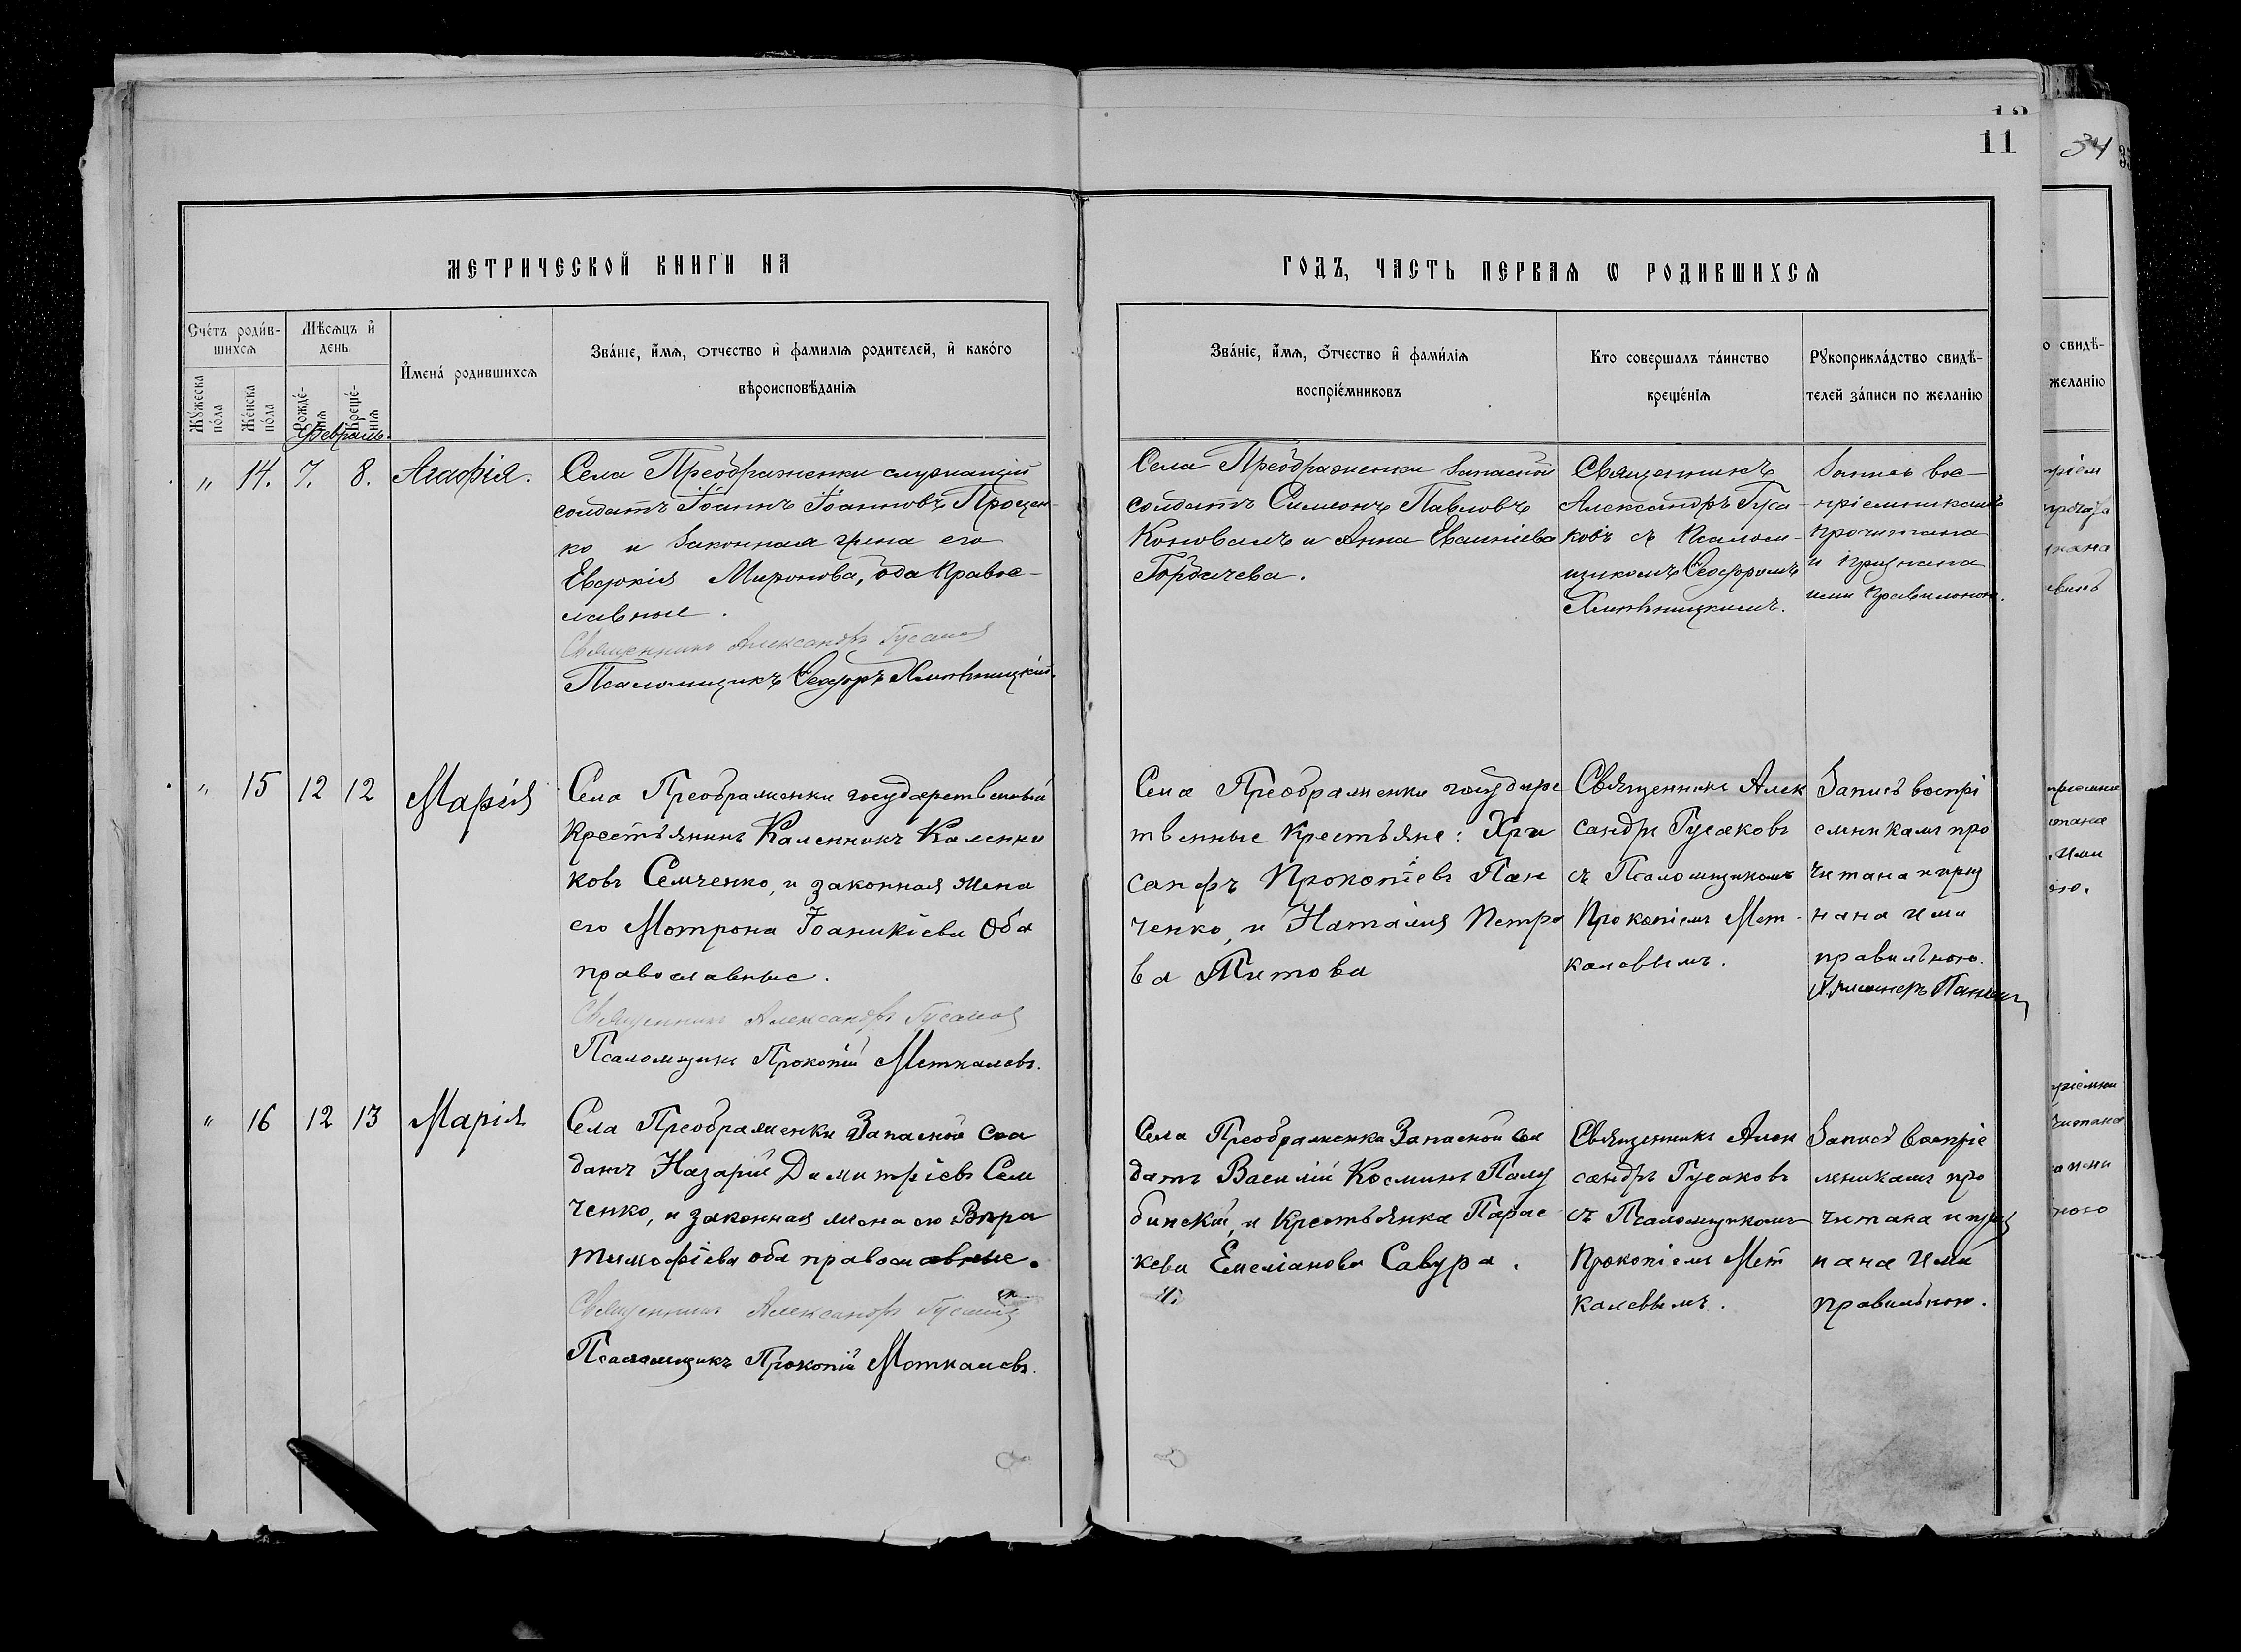 11
34
МЕТРИЧЕСКОЙ КНИГИ НА
ГОДЪ, ЧАСТЬ ПЕРВАЯ Ѡ РОДИВШИХСЯ
Счетъ родив-
шихся
Мѣсяцъ и
день
Имена родившихся
Званіе, имя, отчество и фамилія родителей, и какого
вѣроисповѣданія
Званіе, имя, отчество и фамилія
воспріемниковъ
Кто совершалъ таинство
крещенія
Рукоприкладство свидѣ-
телей записи по желанію
Мужеска
пола
Женска
пола
Рожде-
нія
Креще-
нія
Февраль.
„ 14. 7. 8. Агафія.
Села Преображенки служащій
солдатъ Іоаннъ Іоанновъ Процен-
ко и законная жена его
Евдокія Миронова, оба Правос-
лавные.
Священникъ Александръ Гусаковъ
Псаломщикъ Ѳеодоръ Хмѣльницкій.
Села Преображенки запасной
солдатъ Симеонъ Павловъ
Коновалъ и Анна
Горбачева.
Священникъ
Александръ Гуса-
ковъ съ Псалом-
щикомъ Ѳеодоромъ
Хмѣльницкимъ.
Запись вос-
пріемникамъ
прочитана
и признана
ими правильною.
„ 15 12 12 Марія
Села Преображенки государственный
Крестьянинъ Каленникъ Каленни
ковъ Семченко, и законная жена
его Мотрона Іоаникіева Оба
православные.
Священникъ Александръ Гусаковъ
Псаломщикъ Прокопій Меткалевъ.
Села Преображенки государс
твенные Крестьяне: Хри
санфъ Прокопіевъ Пан
ченко, и Наталія Петро
ва Титова
Священникъ Алек
сандръ Гусаковъ
съ Псаломщикомъ
Прокопіемъ Мет-
калевымъ.
Запись воспрі
емникамъ про
читана и приз
нана ими
правильною.
„ 16 12 13 Марія
Села Преображенки Запасной сол
датъ Назарій Димитріевъ Сем
ченко, и законная жена его Вѣра
Тимофіева оба православные.
Священникъ Александръ Гусаковъ
Псаломщикъ Прокопій Меткалевъ.
Села Преображенки Запасной сол
датъ Василій Косминъ Палу
бинскій, и Крестьянка Парас
кева Емеліанова Савура.
Священникъ Алек
сандръ Гусаковъ
съ Псаломщикомъ
Прокопіемъ Мет
калевымъ.
Запись воспріе
мникамъ про
читана и приз
нана ими
правильною.
о свидѣ-
желанію